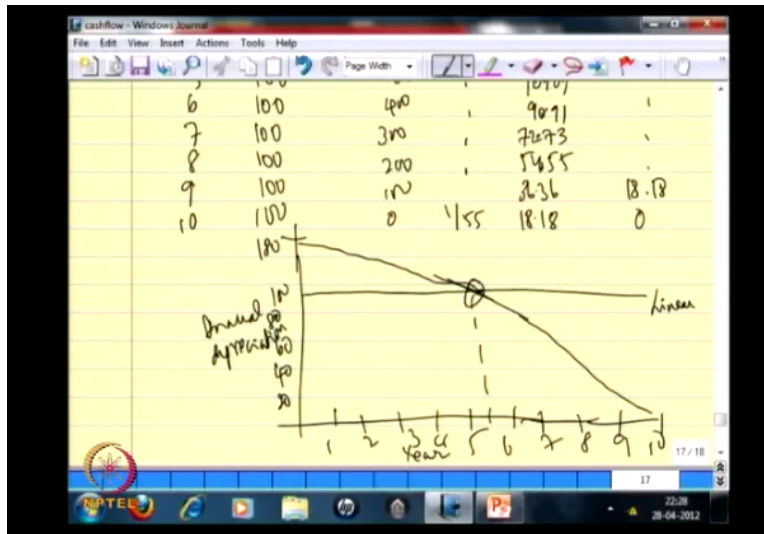 cashflow - Windows Journal
File Edit View Insert Actions Tools Help
Page Width
6 100 400 9091
7 100 300 7273
8 100 200 5455
9 100 100 36.36 18.18
10 100 0 1/55 18.18 0
180
100
Linear
80
Annual
60
depreciation
40
20
1 2 3 4 5 6 7 8 9 10
Year
17 / 18
17
NPTEL
22:28
28-04-2012